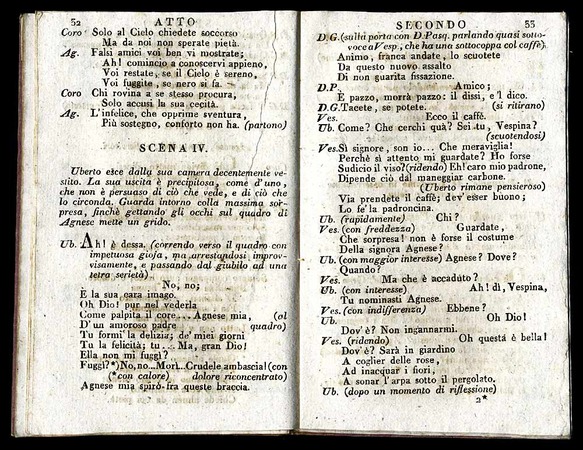 52 ATTO
Coro Solo al Cielo chiedete soccorso
Ma da noi non sperate pietà.
Ag. Falsi amici voi ben vi mostrate;
Ah! comincio a conoscervi appieno,
Voi restate, se il Cielo è sereno,
Voi fuggite, se nero si fa.
Coro Chi rovina a se stesso procura,
Solo accusi la sua cecità.
Ag. L'infelice, che opprime sventura,
Più sostegno, conforto non ha. (partono)
SCENA IV.
Uberto esce dalla sua camera decentemente ve-
stito. La sua uscita è precipitosa, come d'uno,
che non è persuaso di ciò che vede, e di ciò che
lo circonda. Guarda intorno colla massima sor-
presa, finchè gettando gli occhi sul quadro di
Agnese mette un grido.
Ub. Ah! è dessa. (correndo verso il quadro con
impetuosa gioja, ma arrestandosi improv-
visamente, e passando dal giubilo ad una
tetra serietà)
No, no;
È la sua cara imago.
Oh Dio! pur nel vederla
Come palpita il core... Agnese mia, (al
D'un amoroso padre quadro)
Tu formi la delizia; de' miei giorni
Tu la felicità; tu... Ma, gran Dio!
Ella non mi fuggì?
Fuggì?*) No, no... Morì... Crudele ambascia! (con
(*con calore) dolore riconcentrato)
Agnese mia spirò fra queste braccia.
SECONDO 53
D.G. (sulla porta con D. Pasq. parlando quasi sotto-
voce a Vesp, che ha una sottocoppa col caffè)
Animo, franca andate, lo scuotete
Da questo nuovo assalto
Di non guarita fissazione.
D.P. Amico;
È pazzo, morrà pazzo: il dissi, e 'l dico.
D.G. Tacete, se potete. (si ritirano)
Ves. Ecco il caffè.
Ub. Come? Che cerchi quà? Sei tu, Vespina?
(scuotendosi)
Ves. Sì signore, son io... Che meraviglia!
Perchè sì attento mi guardate? Ho forse
Sudicio il viso? (ridendo) Eh! caro mio padrone,
Dipende ciò dal maneggiar carbone.
(Uberto rimane pensieroso)
Via prendete il caffè; dev'esser buono;
Lo fe' la padroncina.
Ub. (rapidamente) Chi?
Ves. (con freddezza) Guardate,
Che sorpresa! non è forse il costume
Della signora Agnese?
Ub. (con maggior interesse) Agnese? Dove?
Quando?
Ves. Ma che è accaduto?
Ub. (con interesse) Ah! dì, Vespina,
Tu nominasti Agnese.
Ves. (con indifferenza) Ebbene?
Ub. Oh Dio!
Dov'è? Non ingannarmi.
Ves. (ridendo) Oh questa è bella!
Dov'è? Sarà in giardino
A coglier delle rose,
Ad inacquar i fiori,
A sonar l'arpa sotto il pergolato.
Ub. (dopo un momento di riflessione)
2*